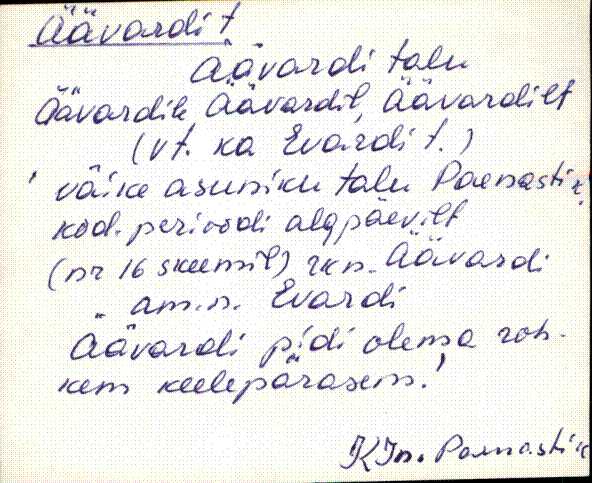 Äävardi t
Äävardi talu
Äävardile, Äävardil, Äävardilt
(vt. ka Evardi t.)
väike asuniku talu Paenasti k.
kod. perioodi algpäevilt
(nr 16 skeemil) rkn. Äävardi
" am.n. Evardi
Äävardi pidi olema roh-
kem keelepärasem!
KJn. Paenasti k